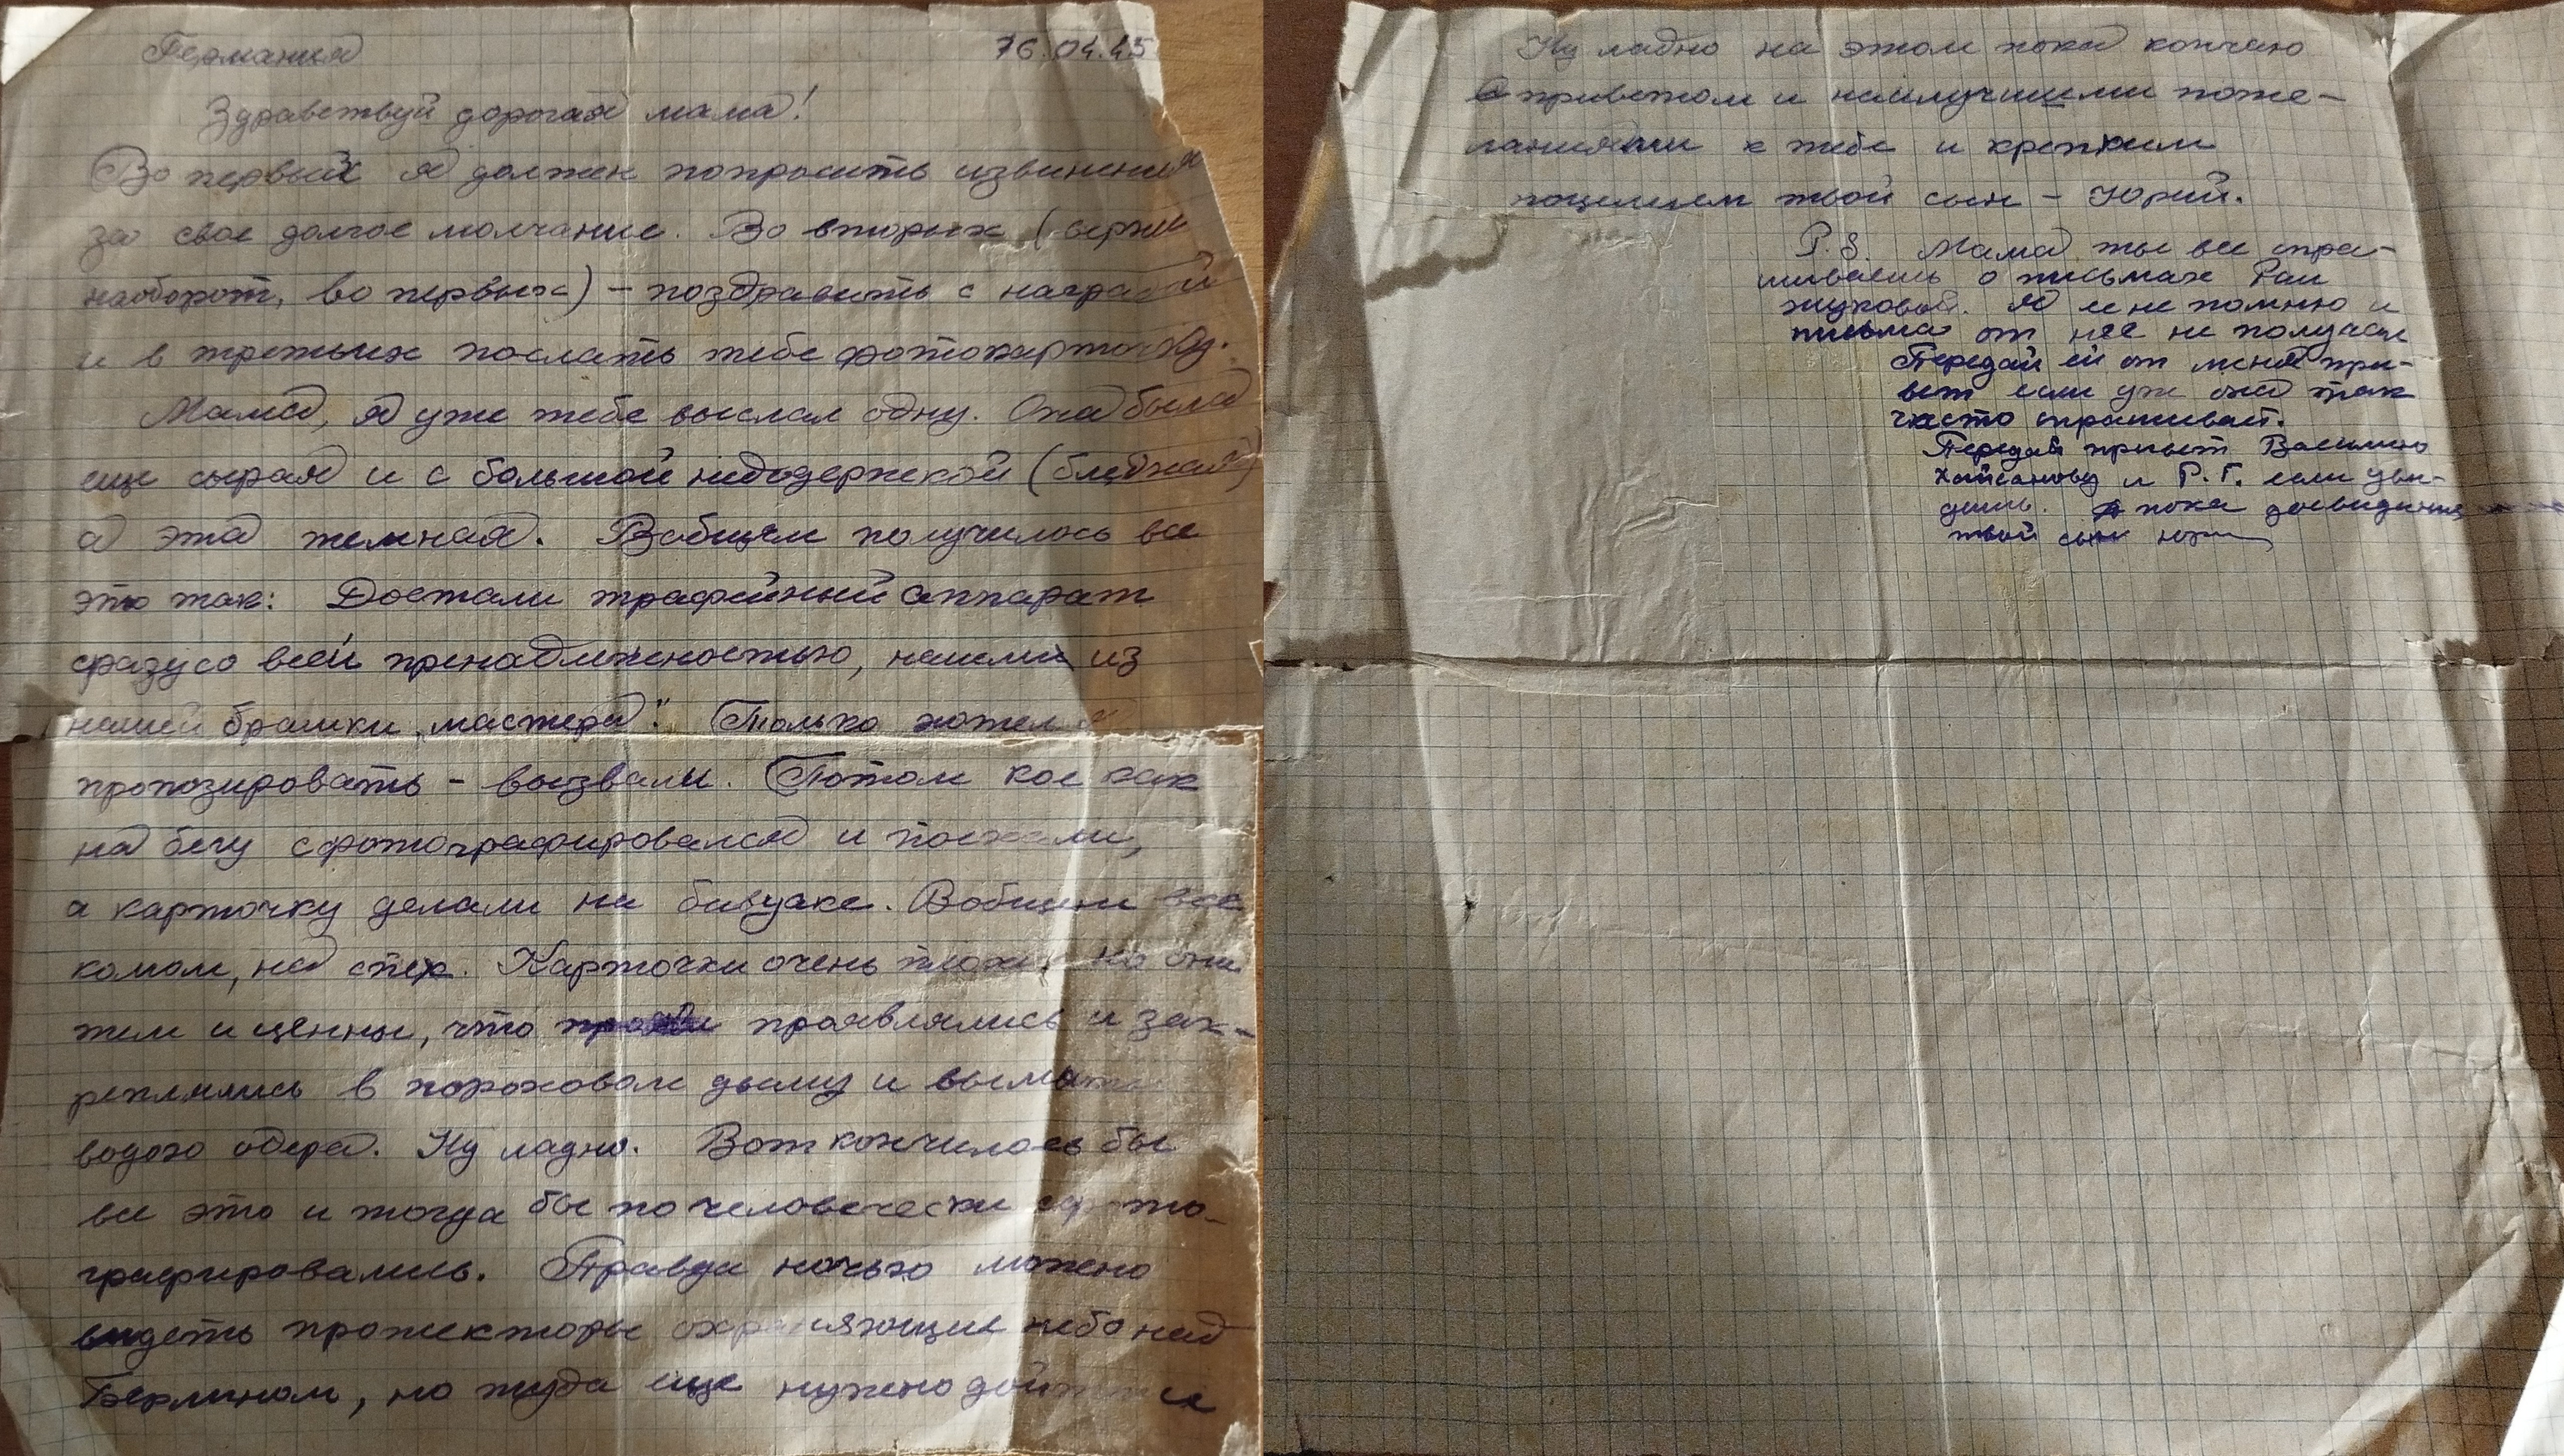 Германия 16.04.45
Здравствуй дорогая мама!
Во первых я должен попросить извинения
за свое долгое молчание. Во вторых (верней
наоборот, во первых) – поздравить с наградой
и в третьих послать тебе фотокарточку.
Мама, я уже тебе выслал одну. Она была
еще сырая и с большой недодержкой (бледная)
а эта темная. Вобщем получилось все
это так: Достали трофейный аппарат
сразу со всей принадлежностью, нашли из
нашей братки „мастера". Только хотел я
пропозировать – вызвали. Потом кое как
на бегу сфотографировался и поехали,
а карточку делали на бивуаке. Вобщем все
комом, на спех. Карточки очень плохи, но они
тем и ценны, что проявлялись и зак-
реплялись в пороховом дыму и вымыты
водою одера. Ну ладно. Вот кончилось бы
все это и тогда бы по человечески сфото-
графировались. Правда ночью можно
видеть прожекторы охраняющие небо над
Берлином, но туда еще нужно дойти и
Ну ладно на этом пока кончаю
С приветом и наилучшими поже-
ланиями к тебе и крепким
поцелуем твой сын – Юрий.
P.S. Мама ты все спра-
шиваешь о письмах Раи
Жуковой. Я ее не помню и
письма от нее не получал
Передай ей от меня при-
вет если уж она так
часто спрашивает.
Передай привет Василию
и Р.Г. если уви-
дишь. А пока досвидания
твой сын Юрий